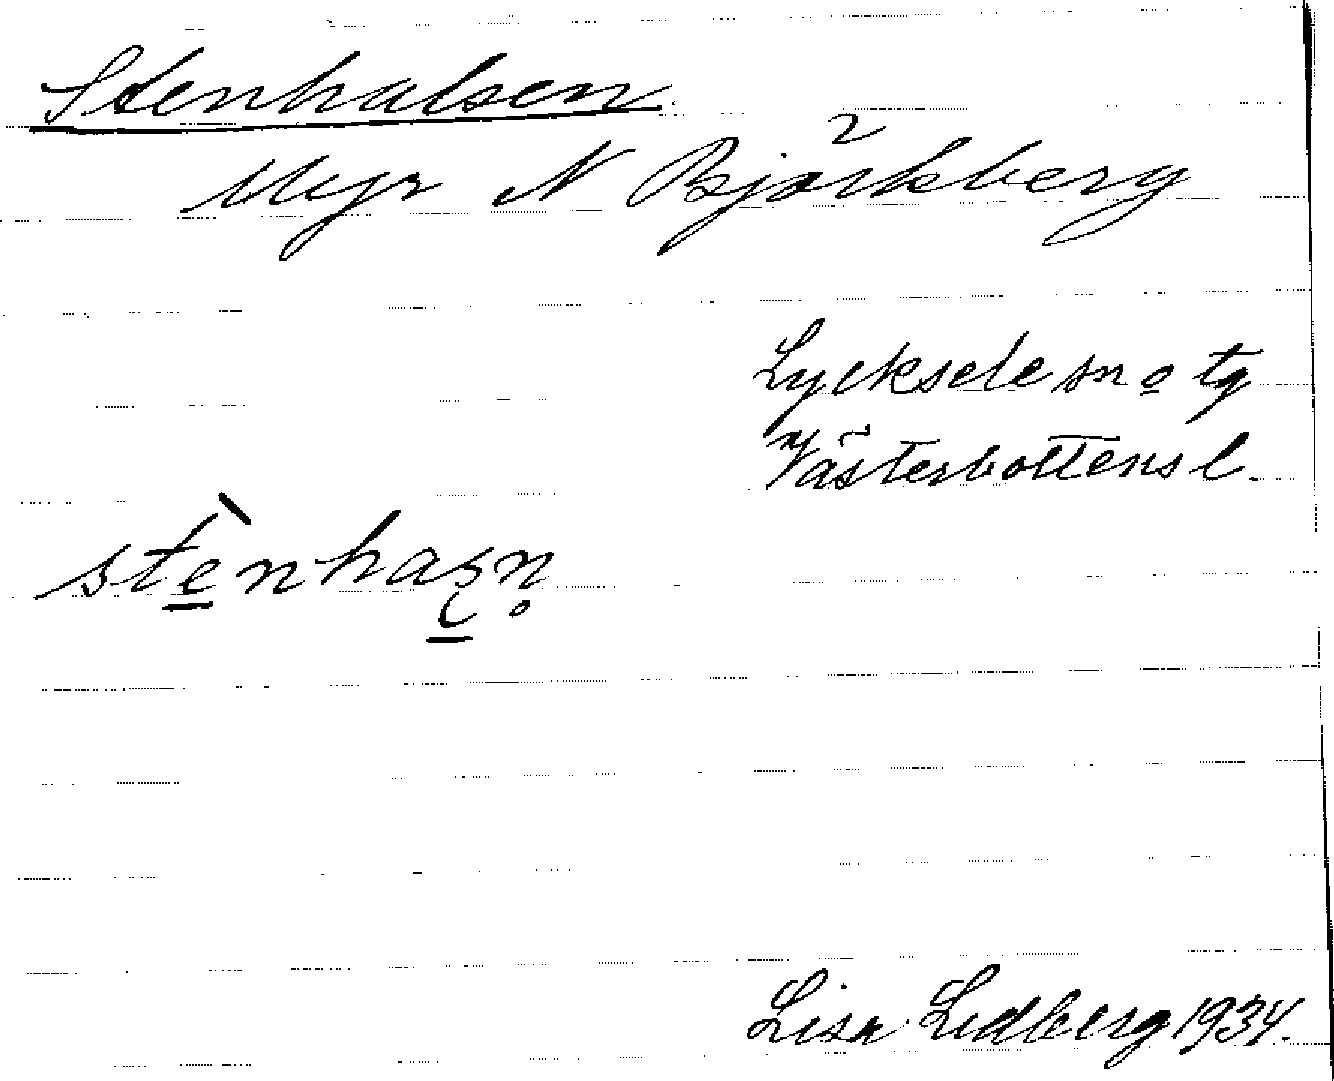 Stenhalsen
Myr N Björkberg
Lycksele sn o tg
Västerbottens l.
stènhaʂn̥
Lisa Lidberg 1934.